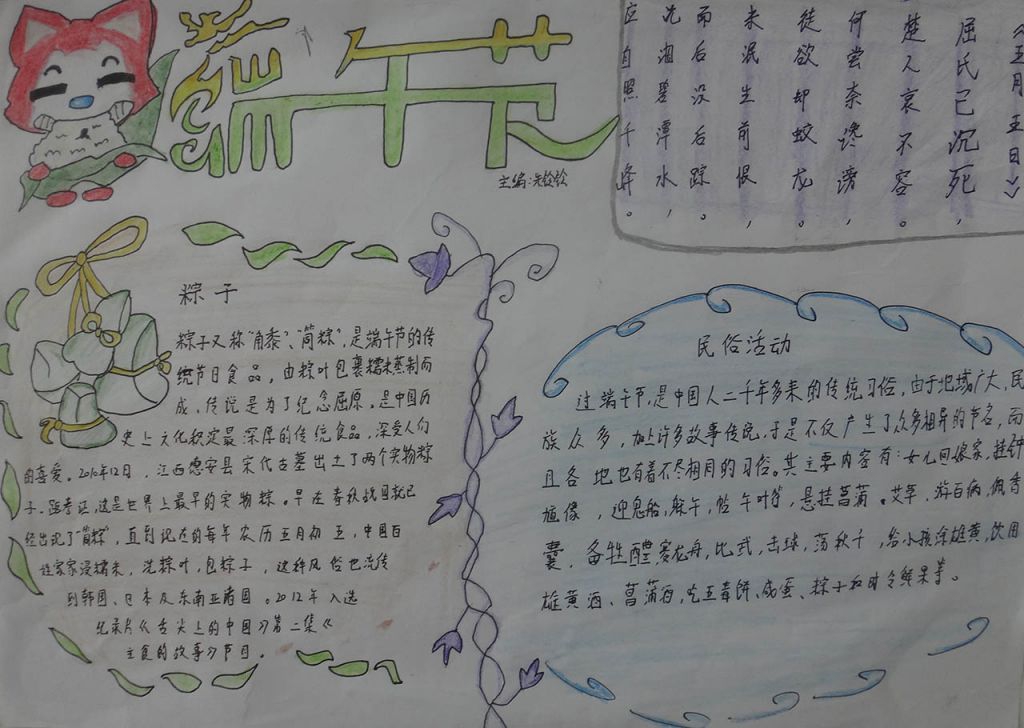 端午节
主编:朱铃铃
《五月五日》
屈氏已沉死，
楚人哀不容。
何尝奈谗谤，
徒欲却蛟龙。
未泯生前恨，
而后没后踪。
沈湘碧潭水，
应自照千峰。
粽子
粽子又称"角黍"、"筒粽"，是端午节的传
统节日食品，由粽叶包裹糯米蒸制而
成，传说是为了纪念屈原。是中国历
史上文化积淀最深厚的传统食品，深受人们
的喜爱。2010年12月，江西德安县宋代古墓出土了两个实物粽
子，据考证，这是世界上最早的实物粽。早在春秋战国就已
经出现了"筒粽"，直到现在的每年农历五月初五，中国百
姓家家浸糯米，洗粽叶，包粽子，这种风俗也流传
到韩国、日本及东南亚诸国。2012年入选
纪录片《舌尖上的中国》第二集《
主食的故事》节目。
民俗活动
过端午节，是中国人二千年多来的传统习俗，由于地域广大，民
族众多，加上许多故事传说，于是不仅产生了众多相异的节名，而
且各地也有着不尽相同的习俗。其主要内容有：女儿回娘家，挂钟
馗像，迎鬼船，躲午，帖午叶符，悬挂菖蒲。艾草，游百病，佩香
囊，备牲醴，赛龙舟，比武，击球，荡秋千，给小孩涂雄黄，饮用
雄黄酒、菖蒲酒，吃五毒饼、咸蛋、粽子和时令鲜果等。